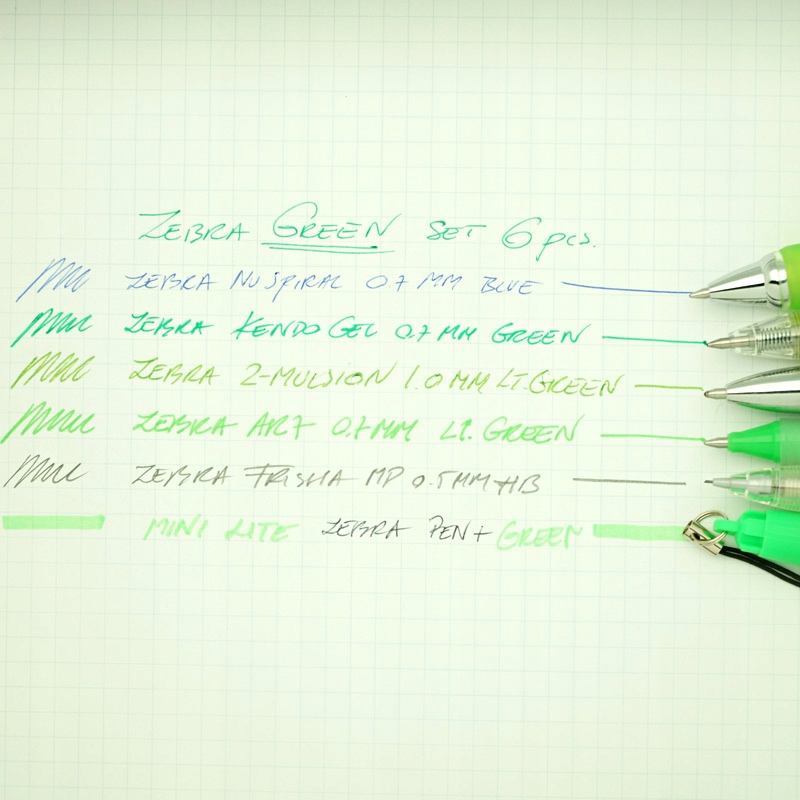 ZEBRA GREEN SET 6 pcs.
ZEBRA NUSPIRAL 0.7 MM BLUE
ZEBRA KENDO GEL 0.7 MM GREEN
ZEBRA 2-MULSION 1.0 MM LT. GREEN
ZEBRA ART 0.7 MM LT. GREEN
ZEBRA FRISHA MP 0.5 MM HB
MINI LITE ZEBRA PEN + GREEN